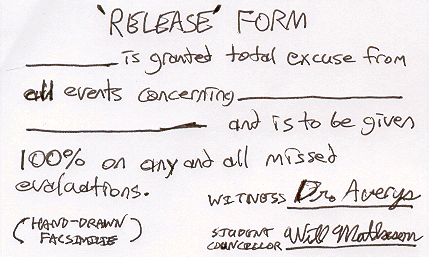 'RELEASE' FORM
________ is granted total excuse from
all events concerning ________________
________________ and is to be given
100% on any and all missed
evaluations.
WITNESS Dr. Averys
(HAND-DRAWN FACSIMILE)
STUDENT COUNCELLOR Will Matheson